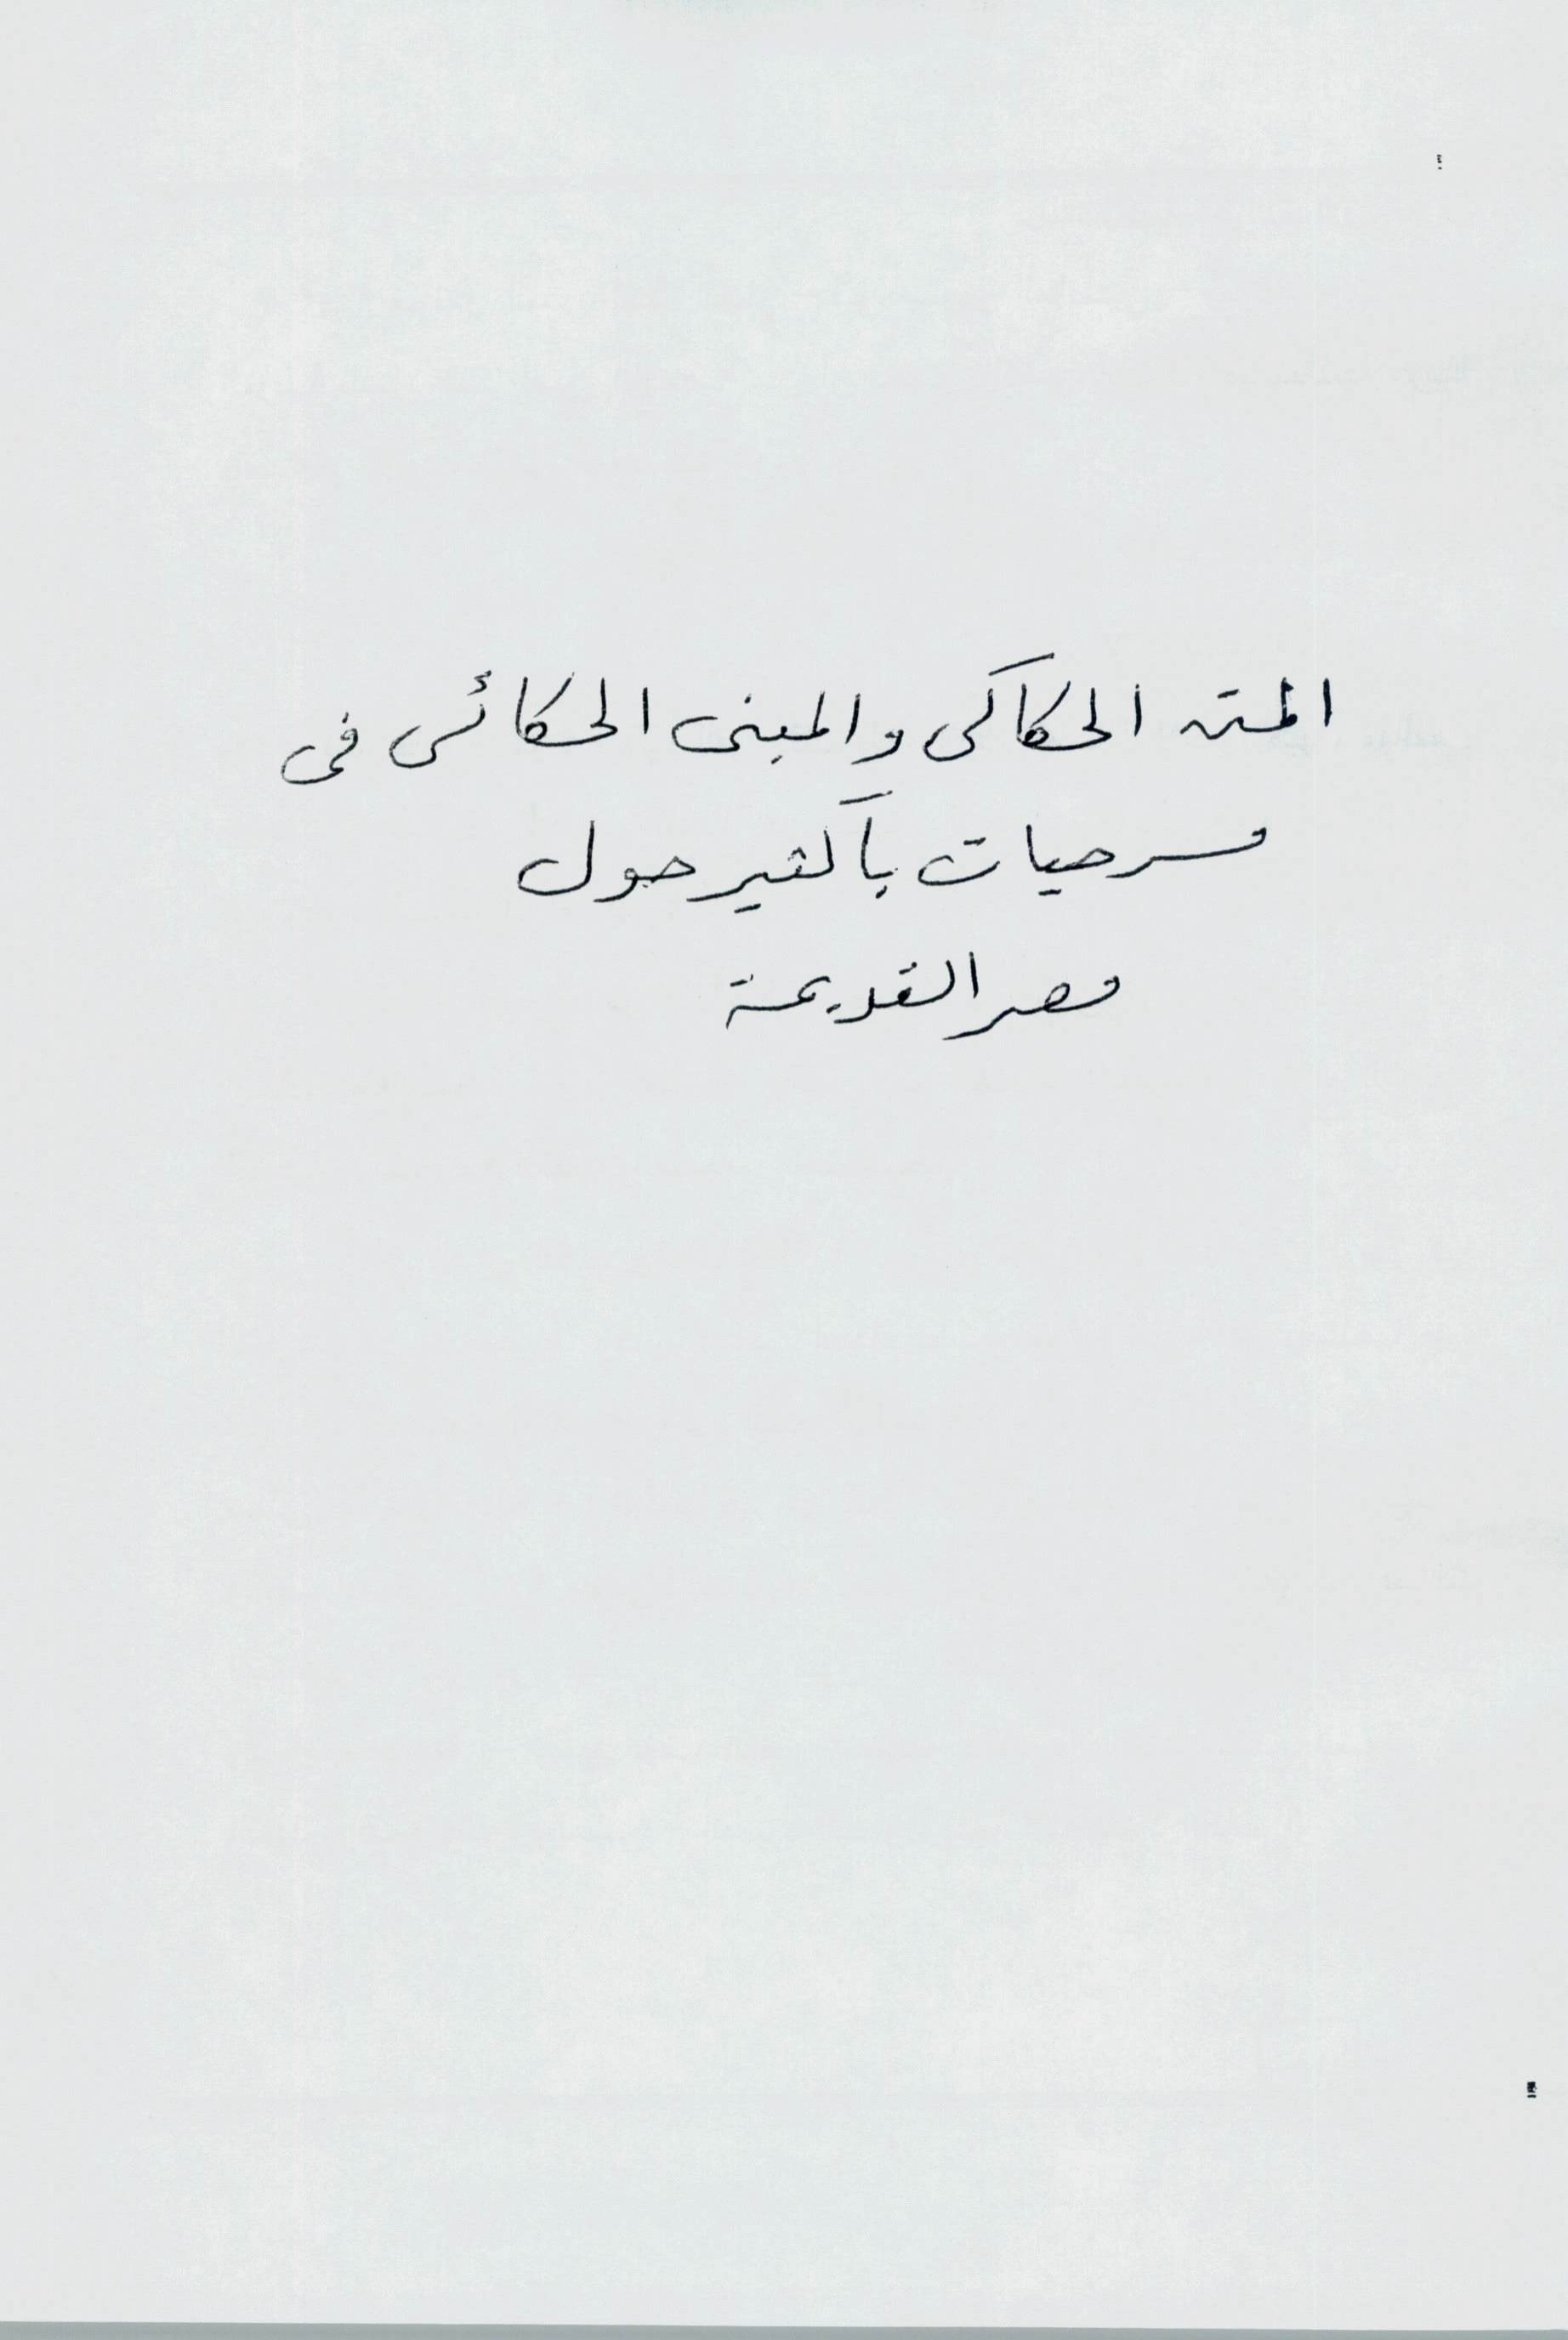 المتن الحكاكى والمبنى الحكائى فى
مسرحيات باكثير حول
مصر القديمة